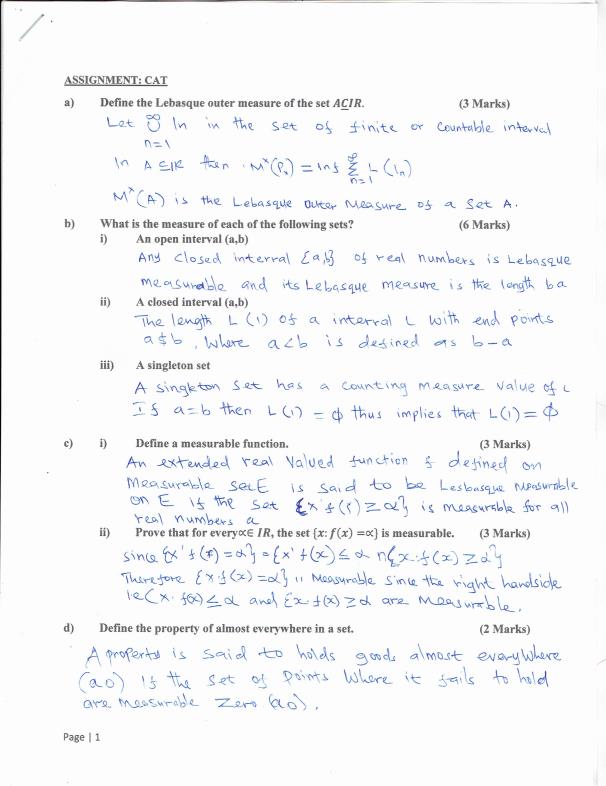 ASSIGNMENT: CAT
a) Define the Lebasque outer measure of the set A⊆IR. (3 Marks)
Let ∞∪n=1 In in the set of finite or countable interval
In A ⊆ IR then M*(P) = inf ∞Σn=1 L (In)
M*(A) is the Lebasque outer Measure of a Set A.
b) What is the measure of each of the following sets? (6 Marks)
i) An open interval (a,b)
Any closed interval {a,b} of real numbers is Lebasque
measurable and its Lebasque measure is the length ba
ii) A closed interval (a,b)
The length L (1) of a interval L with end points
a $ b, where a<b is defined as b-a
iii) A singleton set
A singleton set has a counting measure value of
If a=b then L(1) = ϕ thus implies that L(1) = ϕ
c) i) Define a measurable function. (3 Marks)
An extended real Valued function f defined on
Measurable set E is said to be Lesbasque measurable
on E if the set {x' f(r) ≥ α} is measurable for all
real numbers a
ii) Prove that for every∝∈ IR, the set {x: f(x) =∝} is measurable. (3 Marks)
since {x' f(x) = α'} = {x' f(x) ≤ α n{x. f(x) ≥ α'}
Therefore {x.f(x) = α} is Measurable since the right handside
ie(x. f(x) ≤ α and {x. f(x) ≥ α are Measurable.
d) Define the property of almost everywhere in a set. (2 Marks)
A property is said to holds goods almost everywhere
(ao) if the set of points where it fails to hold
are measurable zero (ao).
Page | 1